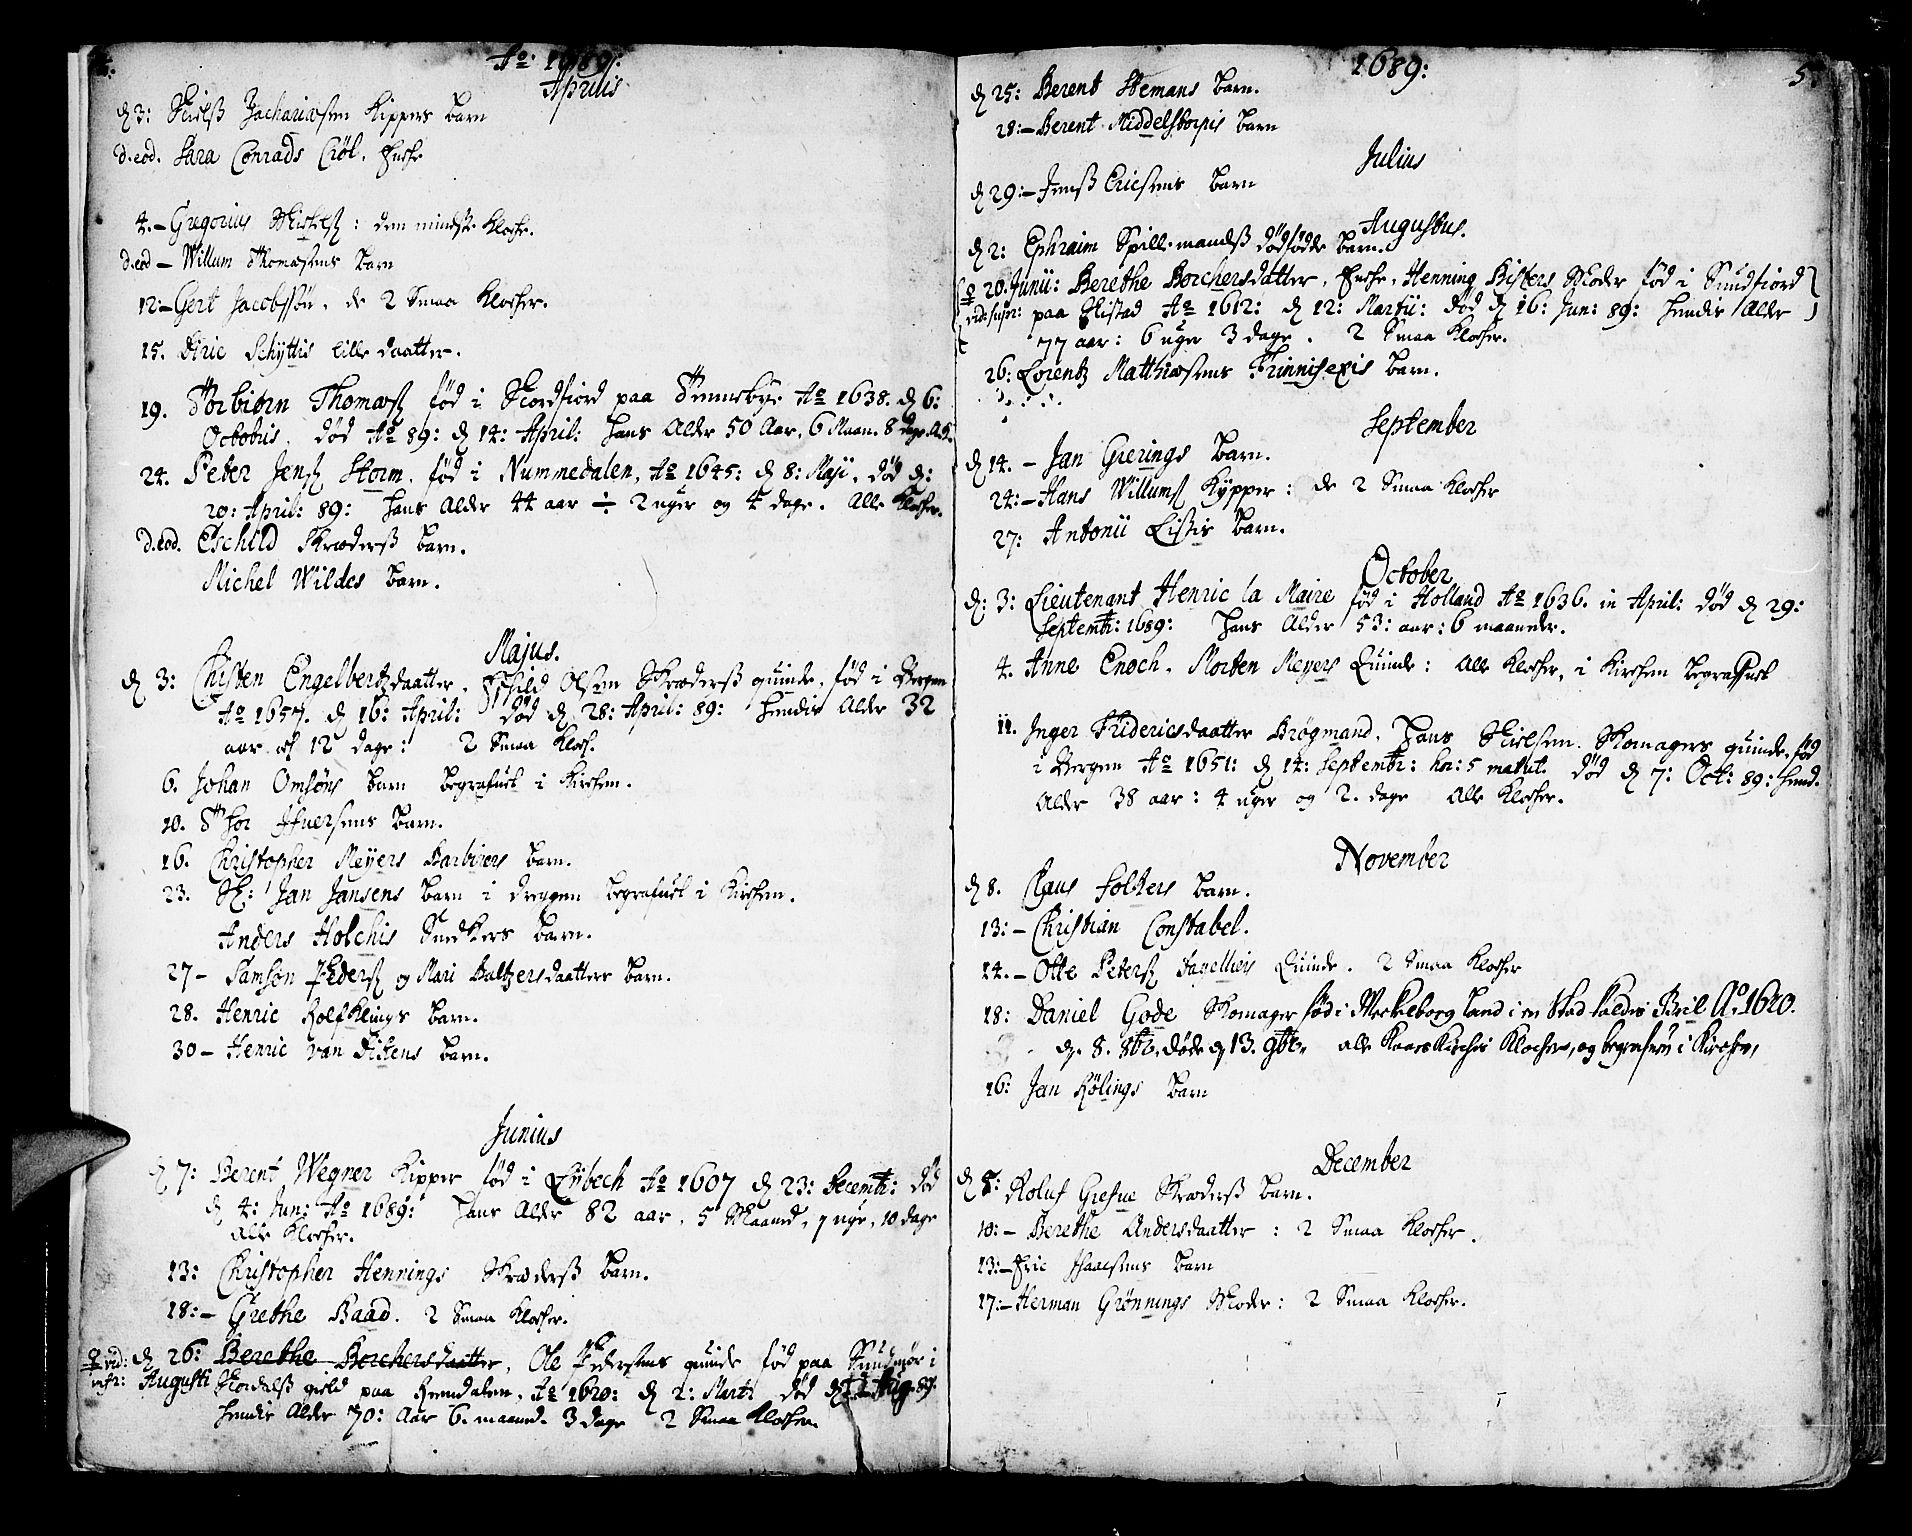 Ao: 1689:
Aprilis
d 3: Nielß Zachariæsen Kippers barn
d.eod. Sara Conrads Crøl. Encke
4.- Gregorius : den mindste Klocke.
d.eod - Willum Thomæsens barn
12:- Gert Jacobssøn, de 2 Smaa Klocker.
15. Diric Schyttis lille daatter.
19. Torbiørn Thomæsß fød i Nordfiord paa Ao 1638. d 6:
Octobris. død Ao 89: d 14: April: hans Alder 50 Aar, 6 Maan. 8 dage.
24. Peter Jensß Storm. fød i Nummedalen, Ao 1645: d 8: Maji. død d:
20: April: 89: hans Alder 44 aar ÷ 2 uger og 4 dage. Alle Klocker.
d.eod. Eschild Skræderß barn.
Michel Wildes barn.
Majus.
d 3: Chisten Engelbertzdaatter. Eschild Olsen Skræderß quinde, fød i Bergen
Ao 1657. d 16: April: død d 28: April: 89: hendis Alder 32
aar og 12 dage: 2 Smaa Klock.
6. Johan Omsøns barn begrafuet i Kircken.
10. Thor Ifuersens barn.
16. Christopher Meyers Barbiers barn.
23. Sr: Jan Jansens barn i dreggen begrafuet i Kircken.
Anders Holchis Snedkers barn.
27- Samson Pedersß og Mari Baltzersdaatters barn.
28. Henric Rolfklings barn.
30- Henric van Dikens barn.
Junius
d 7: Berent Wegner Kipper fød i Lybech Ao 1607 d 23: Decembr: død
d 4: Jun: Ao 1689: hans Alder 82 aar. 5 Maaned, 7 uge, 10 dage
Alle Klocker.
13: Christopher Hennings Skræderß barn.
18:- Grethe Baad. 2 Smaa Klocker.
vid: d 26: Berethe Borchersdaatter, Ole Pedersens quinde fød paa Sundmør i
Augusti gield paa Romdalen, Ao 1620: d 2: Marti død d Aug. 89.
hendis Alder 70: Aar 6. maaned. 3 dage 2 Smaa Klocker
1689:
5.
d 25: Berent Stemans barn.
28:- Berent Middelstorpis barn
Julius
d 29:- Jenß Ericsens barn
Augustus.
d 2: Ephraim Spillemandß dødfødde barn.
20. Junii: Berethe Borchersdatter, Encke, Henning Kisters Moder fød i Sundfiord
paa Ao 1612: d 12: Martii: død d 16: Jun: 89: hendis Alder
77 aar: 6 uger 3 dage. 2 Smaa Klocker.
26: Lorentz Matthiæsens barn.
September
d 14. - Jan Grerings barn.
24:- Hans Willumsß Kypper: de 2 Smaa Klocker
27: Antonii Listis barn.
October
d: 3: Lieutenant Henric la Maire fød i Holland Ao 1636. in April: død d 29:
Septembr: 1689: hans Alder 53: aar: 6 maaneder.
4. Anne Enoch. Morten Meyers Quinde: Alle Klocker, i Kircken begrafuet
11. Inger Fridericsdaatter Brøgmand. Hans Nielsen. Skomagers quinde, fød
i Bergen Ao 1651: d 14: Septembr: hor: 5 matut. død d 7: Oct: 89: hend.
Alder 38 aar: 4 uger og 2. dage Alle Klocker.
November
d 8. Claus Folkers barn.
13:- Christian Constabel.
14.- Otte Petersß Quinde. 2 Smaa Klocker
18: Daniel Gode Skomager fød i Meckelborg Land i en Stad kaldis Bril Ao. 1620.
d. 8. 8br. døde d 13. 9br. alle Klocker, og begrafuen i Kircken,
16: Jan Rølings barn
December
d 5: Roluf Grefue Skræderß barn.
10:- Berethe Andersdaatter: 2 Smaa Klocker.
13:- Eric Isaacsens barn
17:- Herman Grønnings Moder: 2 Smaa Klocker.